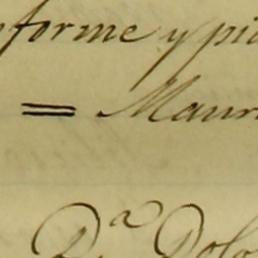 forme y pid
= Mauri
Da Dolo